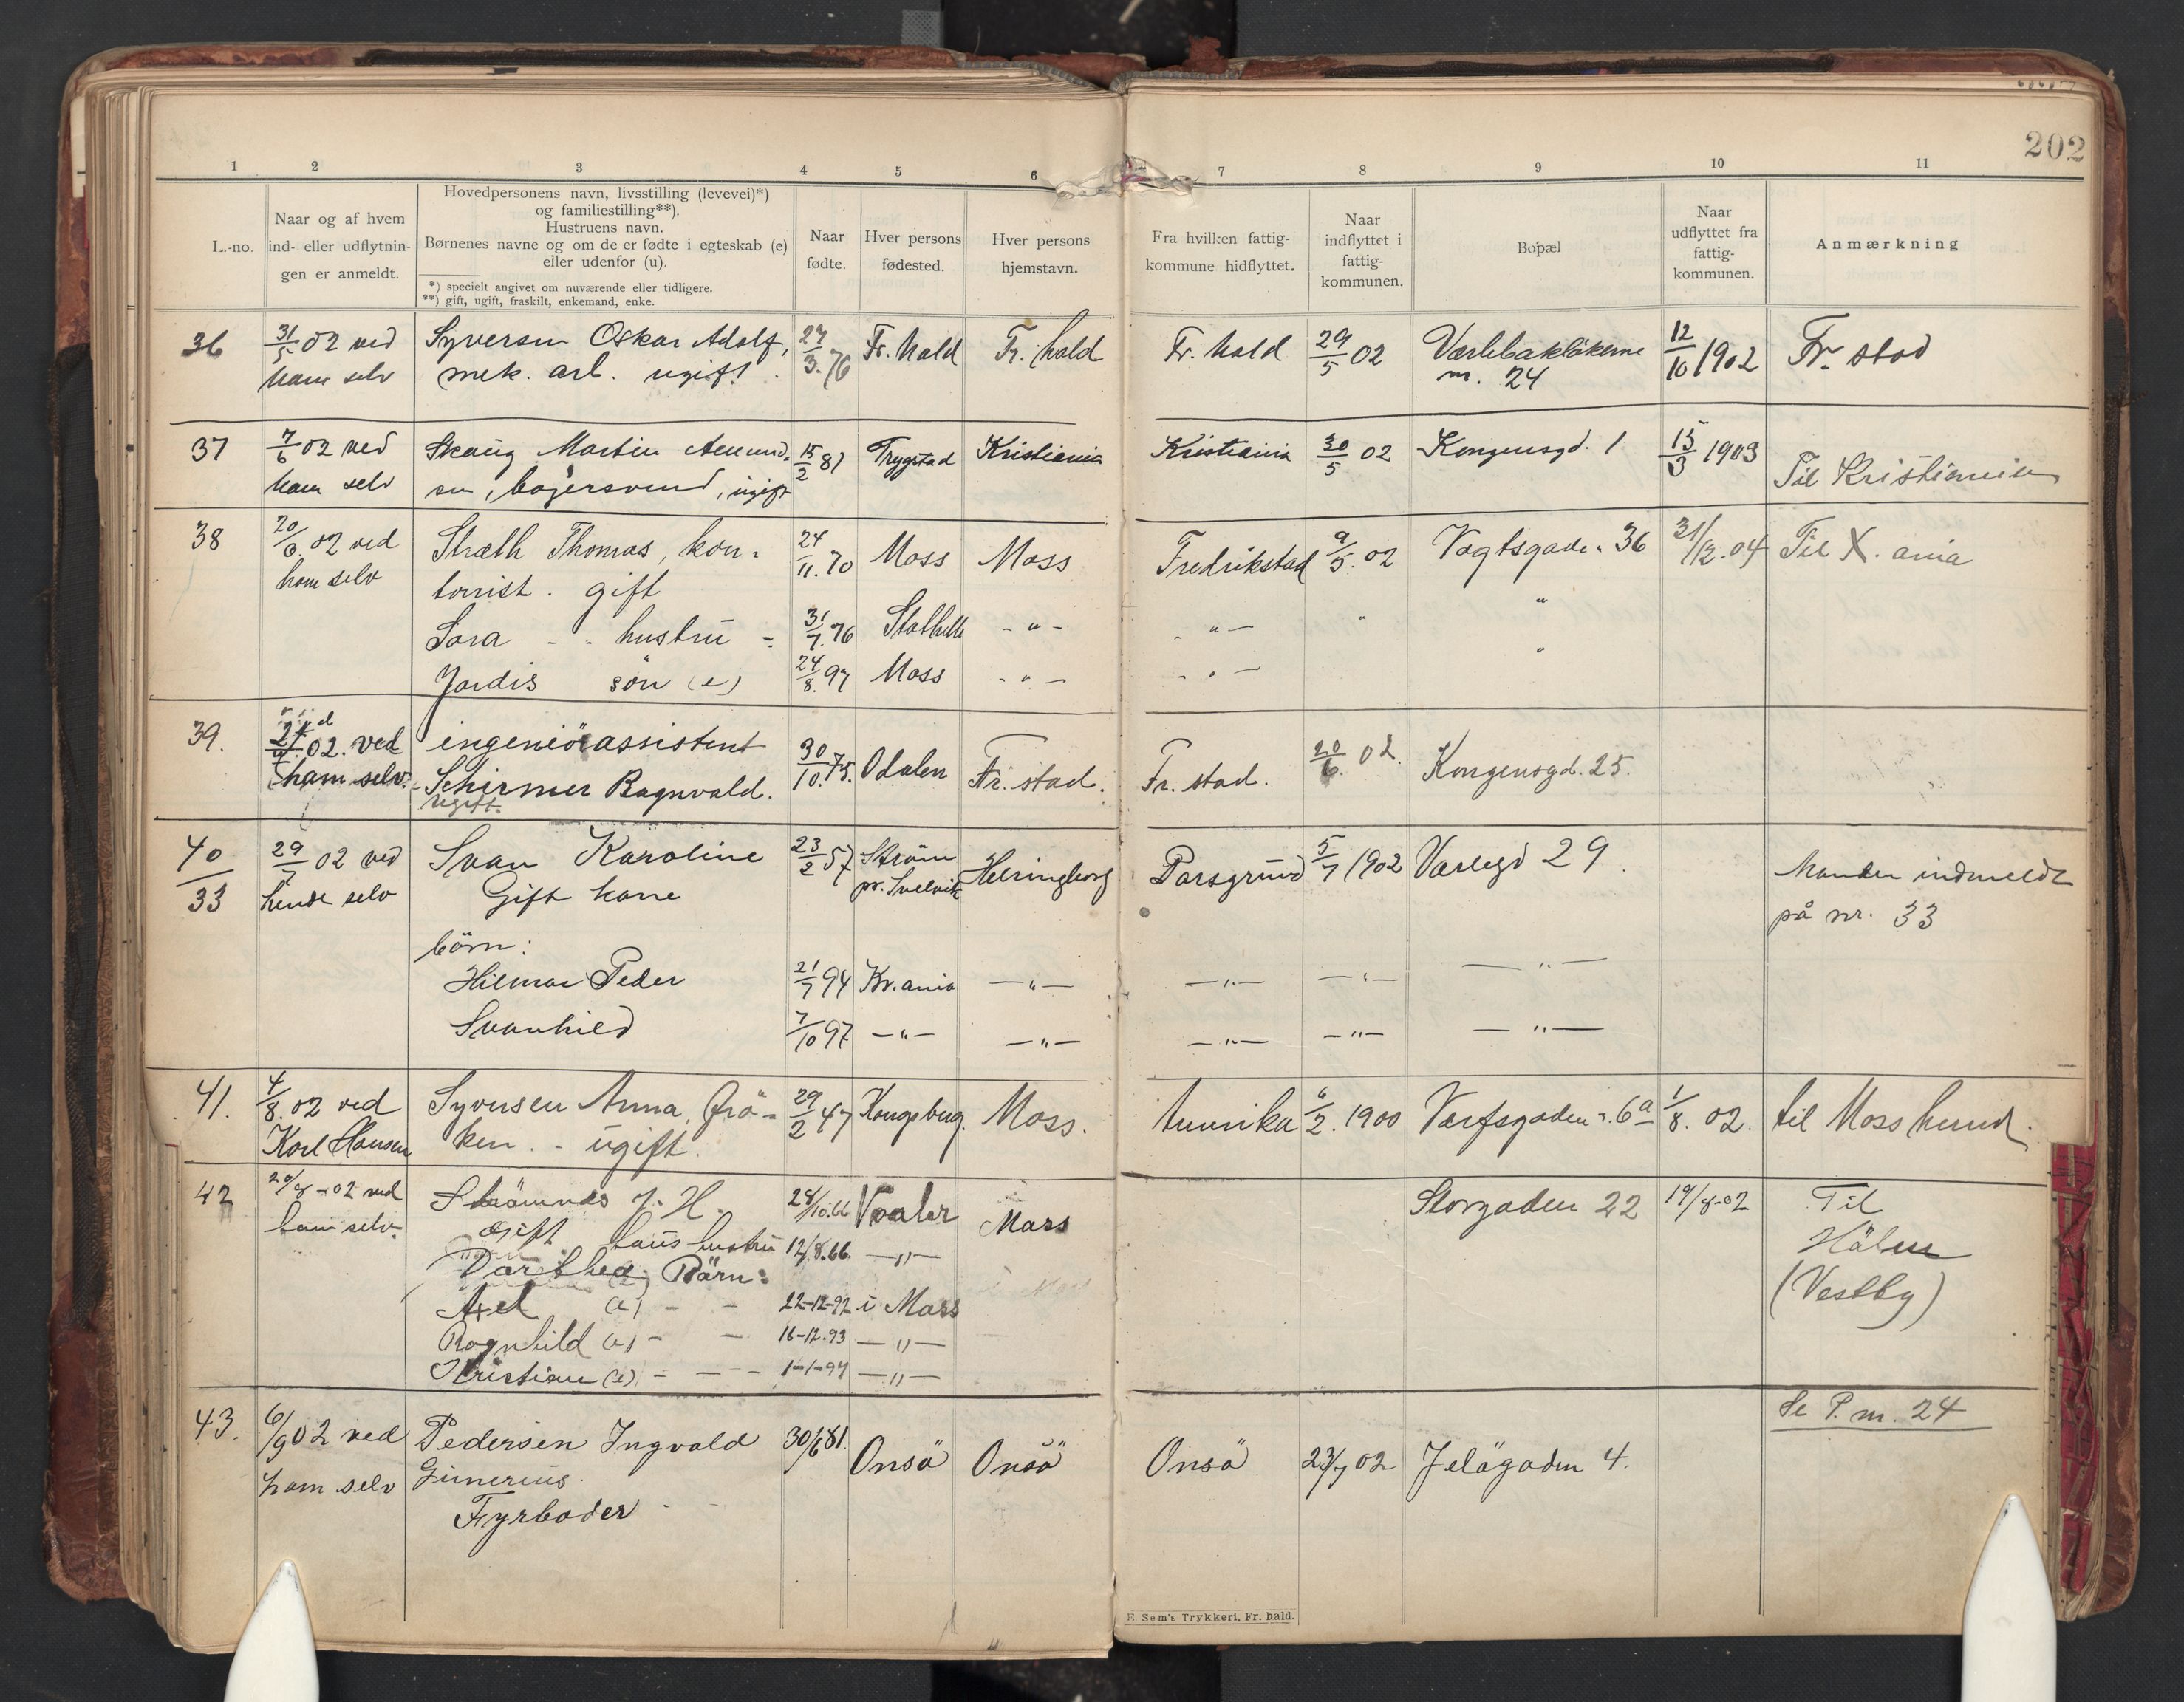 202
1 2 3 4 5 6 7 8 9 10 11
L.-no.
Naar og af hvem
ind- eller udflytnin-
gen er anmeldt.
Hovedpersonens navn, livsstilling (levevei)*)
og familiestilling**).
Hustruens navn.
Børnenes navne og om de er fødte i egteskab (e)
eller udenfor (u).
*) specielt angivet om nuværende eller tidligere.
**) gift, ugift, fraskilt, enkemand, enke.
Naar
fødte.
Hver persons
fødested.
Hver persons
hjemstavn.
Fra hvilken fattig-
kommune hidflyttet.
Naar
indflyttet i
fattig-
kommunen.
Bopæl
Naar
udflyttet fra
fattig-
kommunen.
Anmærkning
36 31/5 02 ved Syversen Oskar Adolf, 27/3.76 Fr.hald Fr. hald Fr. hald 29/5 02 12/10 1902 Fr. stad
ham selv mek. arb. ugift. nr. 24
37 7/6 02 ved Skaug Martin Amund- 15/2 81 Trygstad Kristiania Kristiania 30/5 02 Kongensgd. 1 15/3 1903
ham selv sen, bagersvend, ugift Til Kristiania
38 20/6. 02 ved Stræth Thomas, kon- 24/11.70 Moss Moss Fredrikstad 9/5. 02 Vogtsgaden 36 31/12.04 Til X.ania
ham selv torist. gift
Sara - - hustru - 31/7.76 Stathelle - " - - " - " "
Jordis søn (e) 24/8.97 Moss - " - - " - "
39. 02. ved ingeniørassistent 30/10.75. Odalen Fr. stad. Fr. stad. 20/6. 02. Kongensgd. 25.
ham selv. Schirmer Ragnvald.
ugift.
40/33 29/7 02 ved Svan Karoline 23/2 57 Strøm Helsingborg Porsgrund 5/7 1902 Værlegd 29. Manden indmeldt
hende selv Gift kone pr. Svelvik på nr. 33
børn:
Hilmar Peder 21/7 94 Kr.ania —"— —"— —"— —"—
Svanhild 7/10 97 —"— —"— —"— —"— —"—
41. 4/8. 02 ved Syversen Anna, frø- 29/2 47 Kongsberg. Moss. Amerika 6/2. 1900 Værfsgaden n. 6a 1/8. 02. til Moss herred.
Karl Hansen ken. - ugift.
42 20/8-02 ved Strømnæs J. H. 28/10.66 Vaaler Moss Storgaden 22 19/8-02 Til
ham selv. Gift hans hustru 12/8.66 —"— Hølen
Dorthea. Børn: (Vestby)
Axel (e) - - 22-12-92 i Moss
Ragnhild (e) - - 16-12-93 —"—
Kristian (e) - - - 1-1-97 —"—
Se P. nr. 24
43. 6/9 02 ved Pedersen Ingvald 30/6 81. Onsø Onsø Onsø 23/7 02 Jeløgaden 4.
ham selv Gunerius.
Fyrbøder
E. Sem's Trykkeri, Fr. hald.